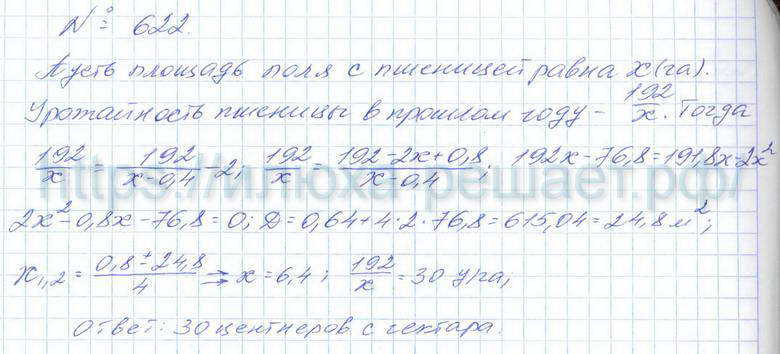 № 622.
Пусть площадь поля с пшеницей равна x (га).
Урожайность пшеницы в прошлом году - 192/x. Тогда
192/x = 192/(x-0,4) - 2; 192/x = (192-2x+0,8)/(x-0,4); 192x-76,8=191,8x-2x²
https://илюха-решает.рф/
2x²-0,8x-76,8=0; D=0,64+4·2·76,8=615,04=24,8м²;
x₁,₂ = (0,8±24,8)/4 ⇒ x=6,4; 192/x = 30 ц/га;
Ответ: 30 центнеров с гектара.